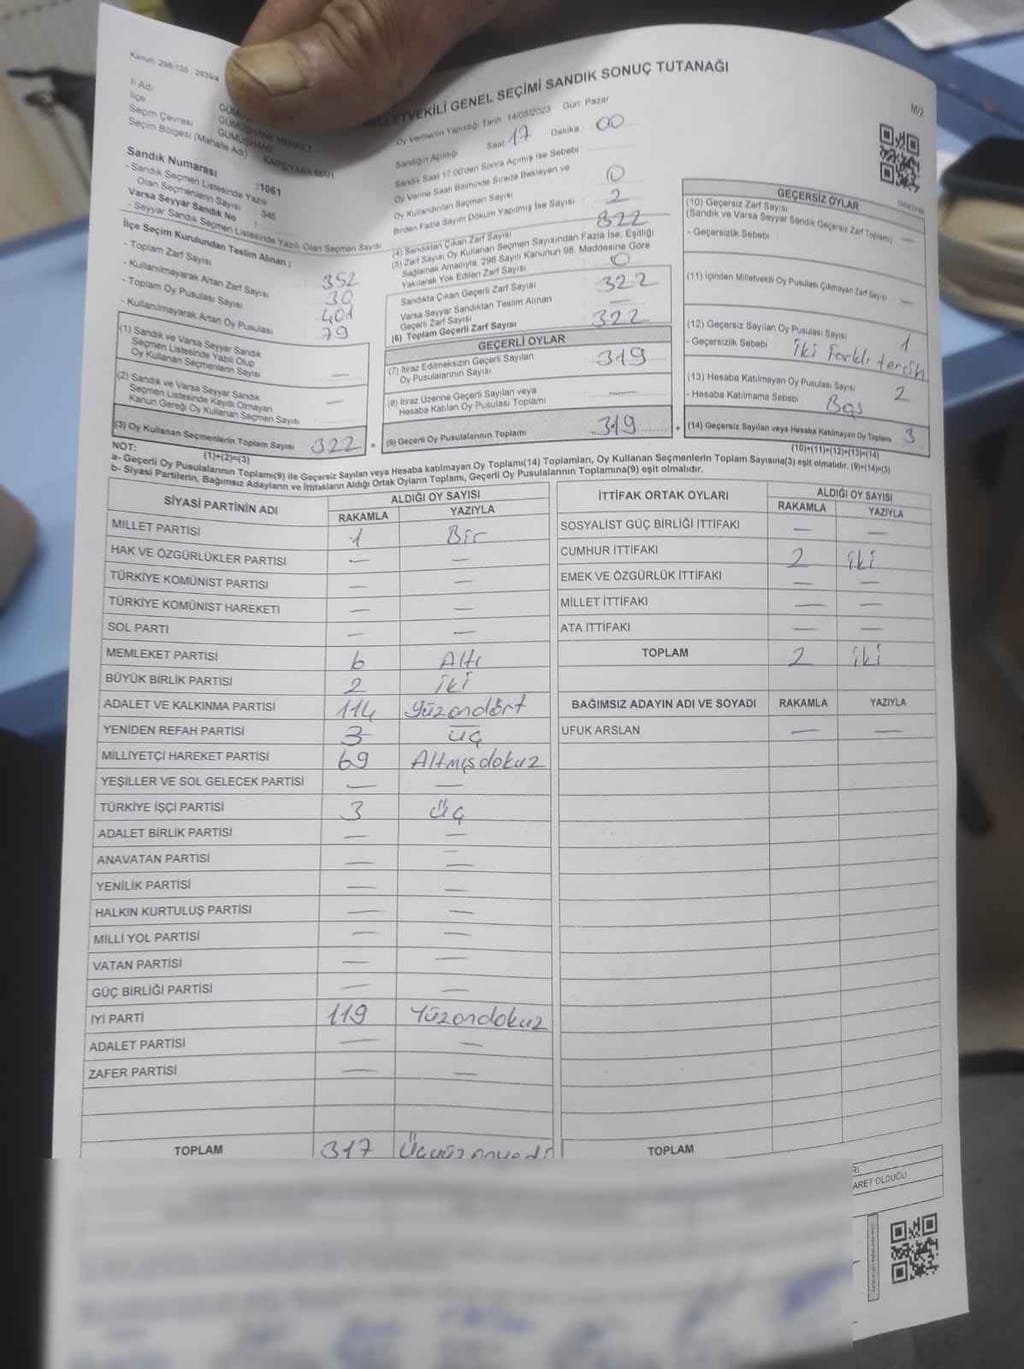 Kanun: 298/105 , 2839/4
LETVEKİLİ GENEL SEÇİMİ SANDIK SONUÇ TUTANAĞI
M/2
İl Adı
İlçe
GÜMÜŞHANE MERKEZ
Seçim Çevresi GÜMÜŞHANE
Seçim Bölgesi (Mahalle Adı) KARŞIYAKA MAH
Sandık Numarası :1061
- Sandık Seçmen Listesinde Yazılı
Olan Seçmenlerin Sayısı : 345
Varsa Seyyar Sandık No
- Seyyar Sandık Seçmen Listesinde Yazılı Olan Seçmen Sayısı
İlçe Seçim Kurulundan Teslim Alınan :
- Toplam Zarf Sayısı 352
- Kullanılmayarak Artan Zarf Sayısı 30
- Toplam Oy Pusulası Sayısı 401
- Kullanılmayarak Artan Oy Pusulası 79
(1) Sandık ve Varsa Seyyar Sandık
Seçmen Listesinde Yazılı Olup
Oy Kullanan Seçmenlerin Sayısı —
(2) Sandık ve Varsa Seyyar Sandık
Seçmen Listesinde Kayıtlı Olmayan
Kanun Gereği Oy Kullanan Seçmen Sayısı —
(3) Oy Kullanan Seçmenlerin Toplam Sayısı 322
(1)+(2)=(3)
Oy Vermenin Yapıldığı Tarih :14/05/2023 Gün: Pazar
Sandığın Açıldığı Saat: 17 Dakika 00
Sandık Saat 17:00'den Sonra Açılmış İse Sebebi
Oy Verme Saati Bitiminde Sırada Bekleyen ve
Oy Kullandırılan Seçmen Sayısı 0
Birden Fazla Sayım Döküm Yapılmış İse Sayısı 2
(4) Sandıktan Çıkan Zarf Sayısı 322
(5) Zarf Sayısı Oy Kullanan Seçmen Sayısından Fazla İse, Eşitliği
Sağlamak Amacıyla, 298 Sayılı Kanunun 98. Maddesine Göre
Yakılarak Yok Edilen Zarf Sayısı 0
Sandıkta Çıkan Geçerli Zarf Sayısı 322
Varsa Seyyar Sandıktan Teslim Alınan
Geçerli Zarf Sayısı —
(6) Toplam Geçerli Zarf Sayısı 322
GEÇERLİ OYLAR
(7) İtiraz Edilmeksizin Geçerli Sayılan
Oy Pusulalarının Sayısı 319
(8) İtiraz Üzerine Geçerli Sayılan veya
Hesaba Katılan Oy Pusulası Toplamı —
(9) Geçerli Oy Pusulalarının Toplamı 319
GEÇERSİZ OYLAR
(10) Geçersiz Zarf Sayısı
(Sandık ve Varsa Seyyar Sandık Geçersiz Zarf Toplamı) —
- Geçersizlik Sebebi
(11) İçinden Milletvekili Oy Pusulası Çıkmayan Zarf Sayısı —
(12) Geçersiz Sayılan Oy Pusulası Sayısı 1
- Geçersizlik Sebebi : iki Farklı tercih
(13) Hesaba Katılmayan Oy Pusulası Sayısı 2
- Hesaba Katılmama Sebebi : Boş
(14) Geçersiz Sayılan veya Hesaba Katılmayan Oy Toplamı 3
(10)+(11)+(12)+(13)=(14)
NOT:
a- Geçerli Oy Pusulalarının Toplamı(9) ile Geçersiz Sayılan veya Hesaba katılmayan Oy Toplamı(14) Toplamları, Oy Kullanan Seçmenlerin Toplam Sayısına(3) eşit olmalıdır. (9)+(14)=(3)
b- Siyasi Partilerin, Bağımsız Adayların ve İttifakların Aldığı Ortak Oyların Toplamı, Geçerli Oy Pusulalarının Toplamına(9) eşit olmalıdır.
SİYASİ PARTİNİN ADI ALDIĞI OY SAYISI
RAKAMLA YAZIYLA
MİLLET PARTİSİ 1 Bir
HAK VE ÖZGÜRLÜKLER PARTİSİ — —
TÜRKİYE KOMÜNİST PARTİSİ — —
TÜRKİYE KOMÜNİST HAREKETİ — —
SOL PARTİ — —
MEMLEKET PARTİSİ 6 Altı
BÜYÜK BİRLİK PARTİSİ 2 iki
ADALET VE KALKINMA PARTİSİ 114 Yüzondört
YENİDEN REFAH PARTİSİ 3 üç
MİLLİYETÇİ HAREKET PARTİSİ 69 Altmışdokuz
YEŞİLLER VE SOL GELECEK PARTİSİ — —
TÜRKİYE İŞÇİ PARTİSİ 3 üç
ADALET BİRLİK PARTİSİ — —
ANAVATAN PARTİSİ — —
YENİLİK PARTİSİ — —
HALKIN KURTULUŞ PARTİSİ — —
MİLLİ YOL PARTİSİ — —
VATAN PARTİSİ — —
GÜÇ BİRLİĞİ PARTİSİ — —
İYİ PARTİ 119 Yüzondokuz
ADALET PARTİSİ — —
ZAFER PARTİSİ — —
TOPLAM 317 Üçyüzonyedi
İTTİFAK ORTAK OYLARI ALDIĞI OY SAYISI
RAKAMLA YAZIYLA
SOSYALİST GÜÇ BİRLİĞİ İTTİFAKI — —
CUMHUR İTTİFAKI 2 iki
EMEK VE ÖZGÜRLÜK İTTİFAKI — —
MİLLET İTTİFAKI — —
ATA İTTİFAKI — —
TOPLAM 2 iki
BAĞIMSIZ ADAYIN ADI VE SOYADI RAKAMLA YAZIYLA
UFUK ARSLAN — —
TOPLAM
ARET OLDUĞU